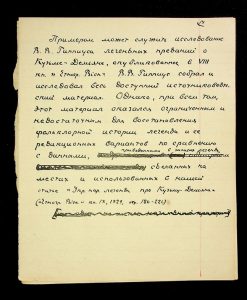 Примером может служить исследование
В. В. Гиппиуса легенды и преданий о
Кузьме-Демьяне, опубликованное в VIII
кн. "Етногр. Вісн." В. В. Гиппиус собрал и
исследовал весь доступный источниковедче-
ский материал. Однако, при всем том,
этот материал оказался ограниченным и
недостаточным для восстановления
фольклорной истории легенды и ее
редакционных вариантов по сравнению
с данными,
сделанных на
местах и использованных в нашей
статье "Укр. нар. легенда про Кузьму-Демьяна"
("Етногр. Вісн." кн. IX, 1929,